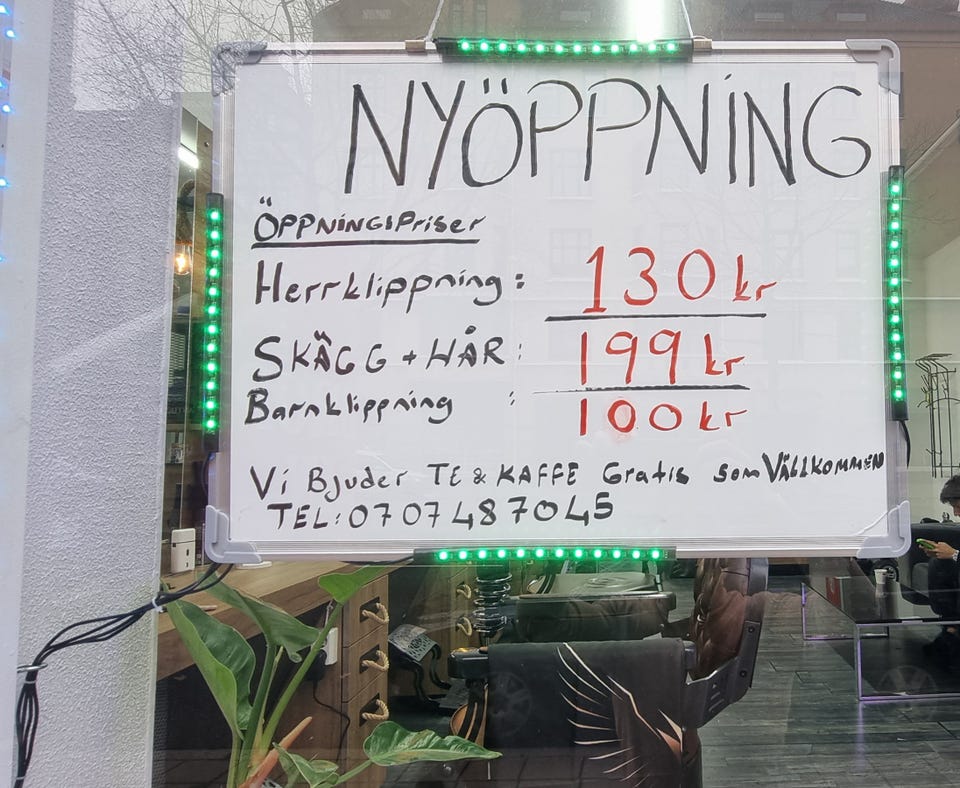 NYÖPPNING
ÖPPNINGSPriser
Herrklippning: 130 kr
SKÄGG + HÅR: 199 kr
Barnklippning : 100 kr
Vi Bjuder TE & KAFFE Gratis som VÄLLKOMMEN
TEL: 0707487045